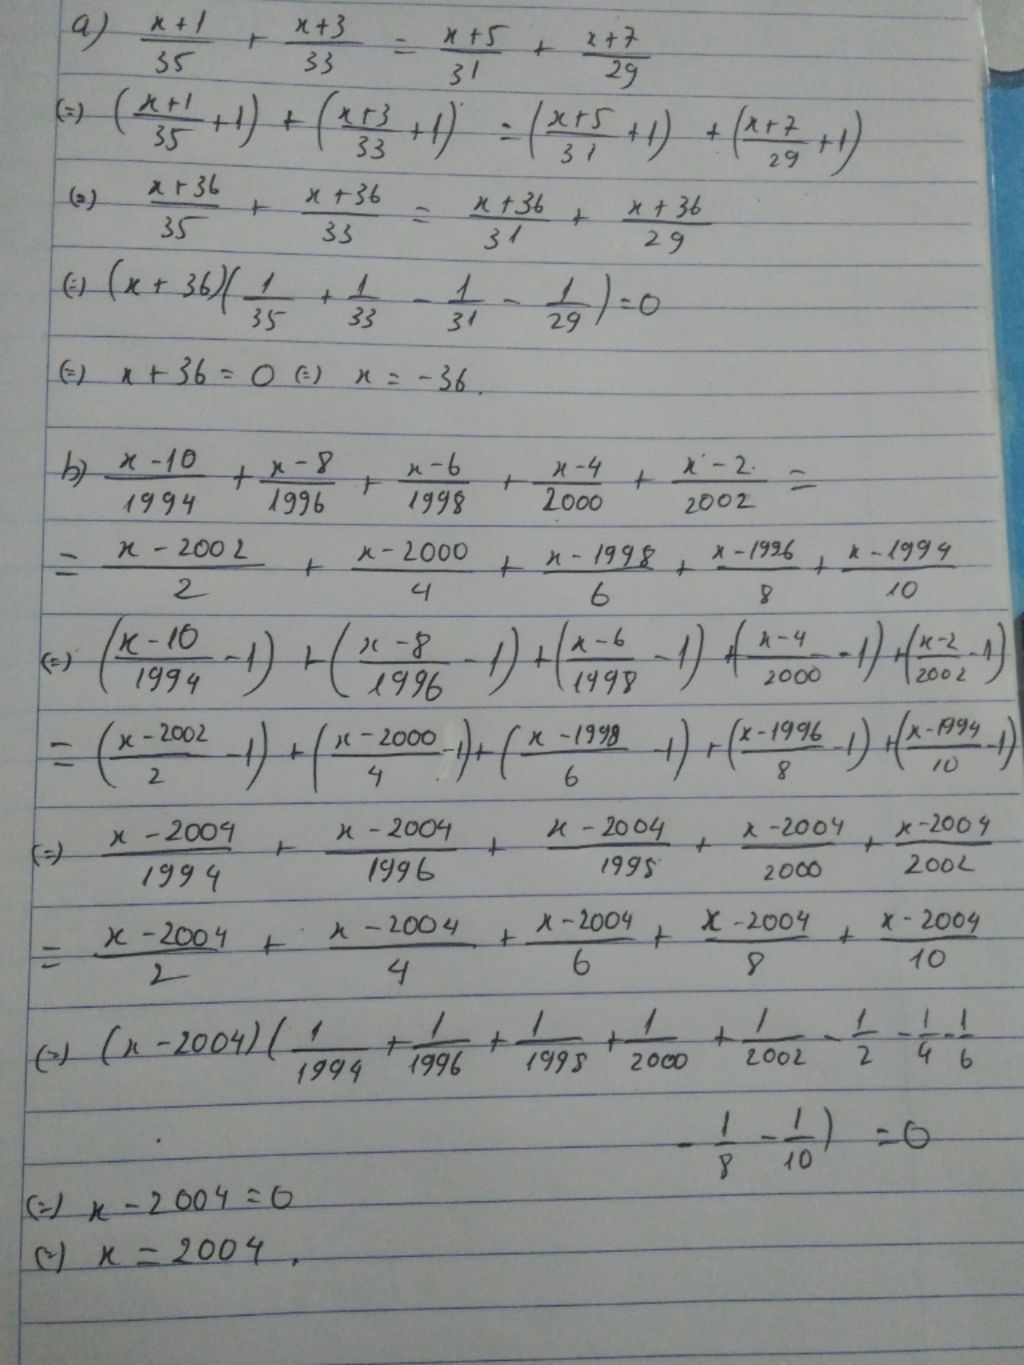 a) (x+1)/35 + (x+3)/33 = (x+5)/31 + (x+7)/29
(=) ((x+1)/35 + 1) + ((x+3)/33 + 1) = ((x+5)/31 + 1) + ((x+7)/29 + 1)
(=) (x+36)/35 + (x+36)/33 = (x+36)/31 + (x+36)/29
(=) (x+36)(1/35 + 1/33 - 1/31 - 1/29) = 0
(=) x + 36 = 0 (=) x = -36.
b) (x-10)/1994 + (x-8)/1996 + (x-6)/1998 + (x-4)/2000 + (x-2)/2002 =
= (x-2002)/2 + (x-2000)/4 + (x-1998)/6 + (x-1996)/8 + (x-1994)/10
(=) ((x-10)/1994 - 1) + ((x-8)/1996 - 1) + ((x-6)/1998 - 1) + ((x-4)/2000 - 1) + ((x-2)/2002 - 1)
= ((x-2002)/2 - 1) + ((x-2000)/4 - 1) + ((x-1998)/6 - 1) + ((x-1996)/8 - 1) + ((x-1994)/10 - 1)
(=) (x-2004)/1994 + (x-2004)/1996 + (x-2004)/1998 + (x-2004)/2000 + (x-2004)/2002
= (x-2004)/2 + (x-2004)/4 + (x-2004)/6 + (x-2004)/8 + (x-2004)/10
(=) (x-2004)(1/1994 + 1/1996 + 1/1998 + 1/2000 + 1/2002 - 1/2 - 1/4 - 1/6
- 1/8 - 1/10) = 0
(=) x - 2004 = 0
(=) x = 2004.